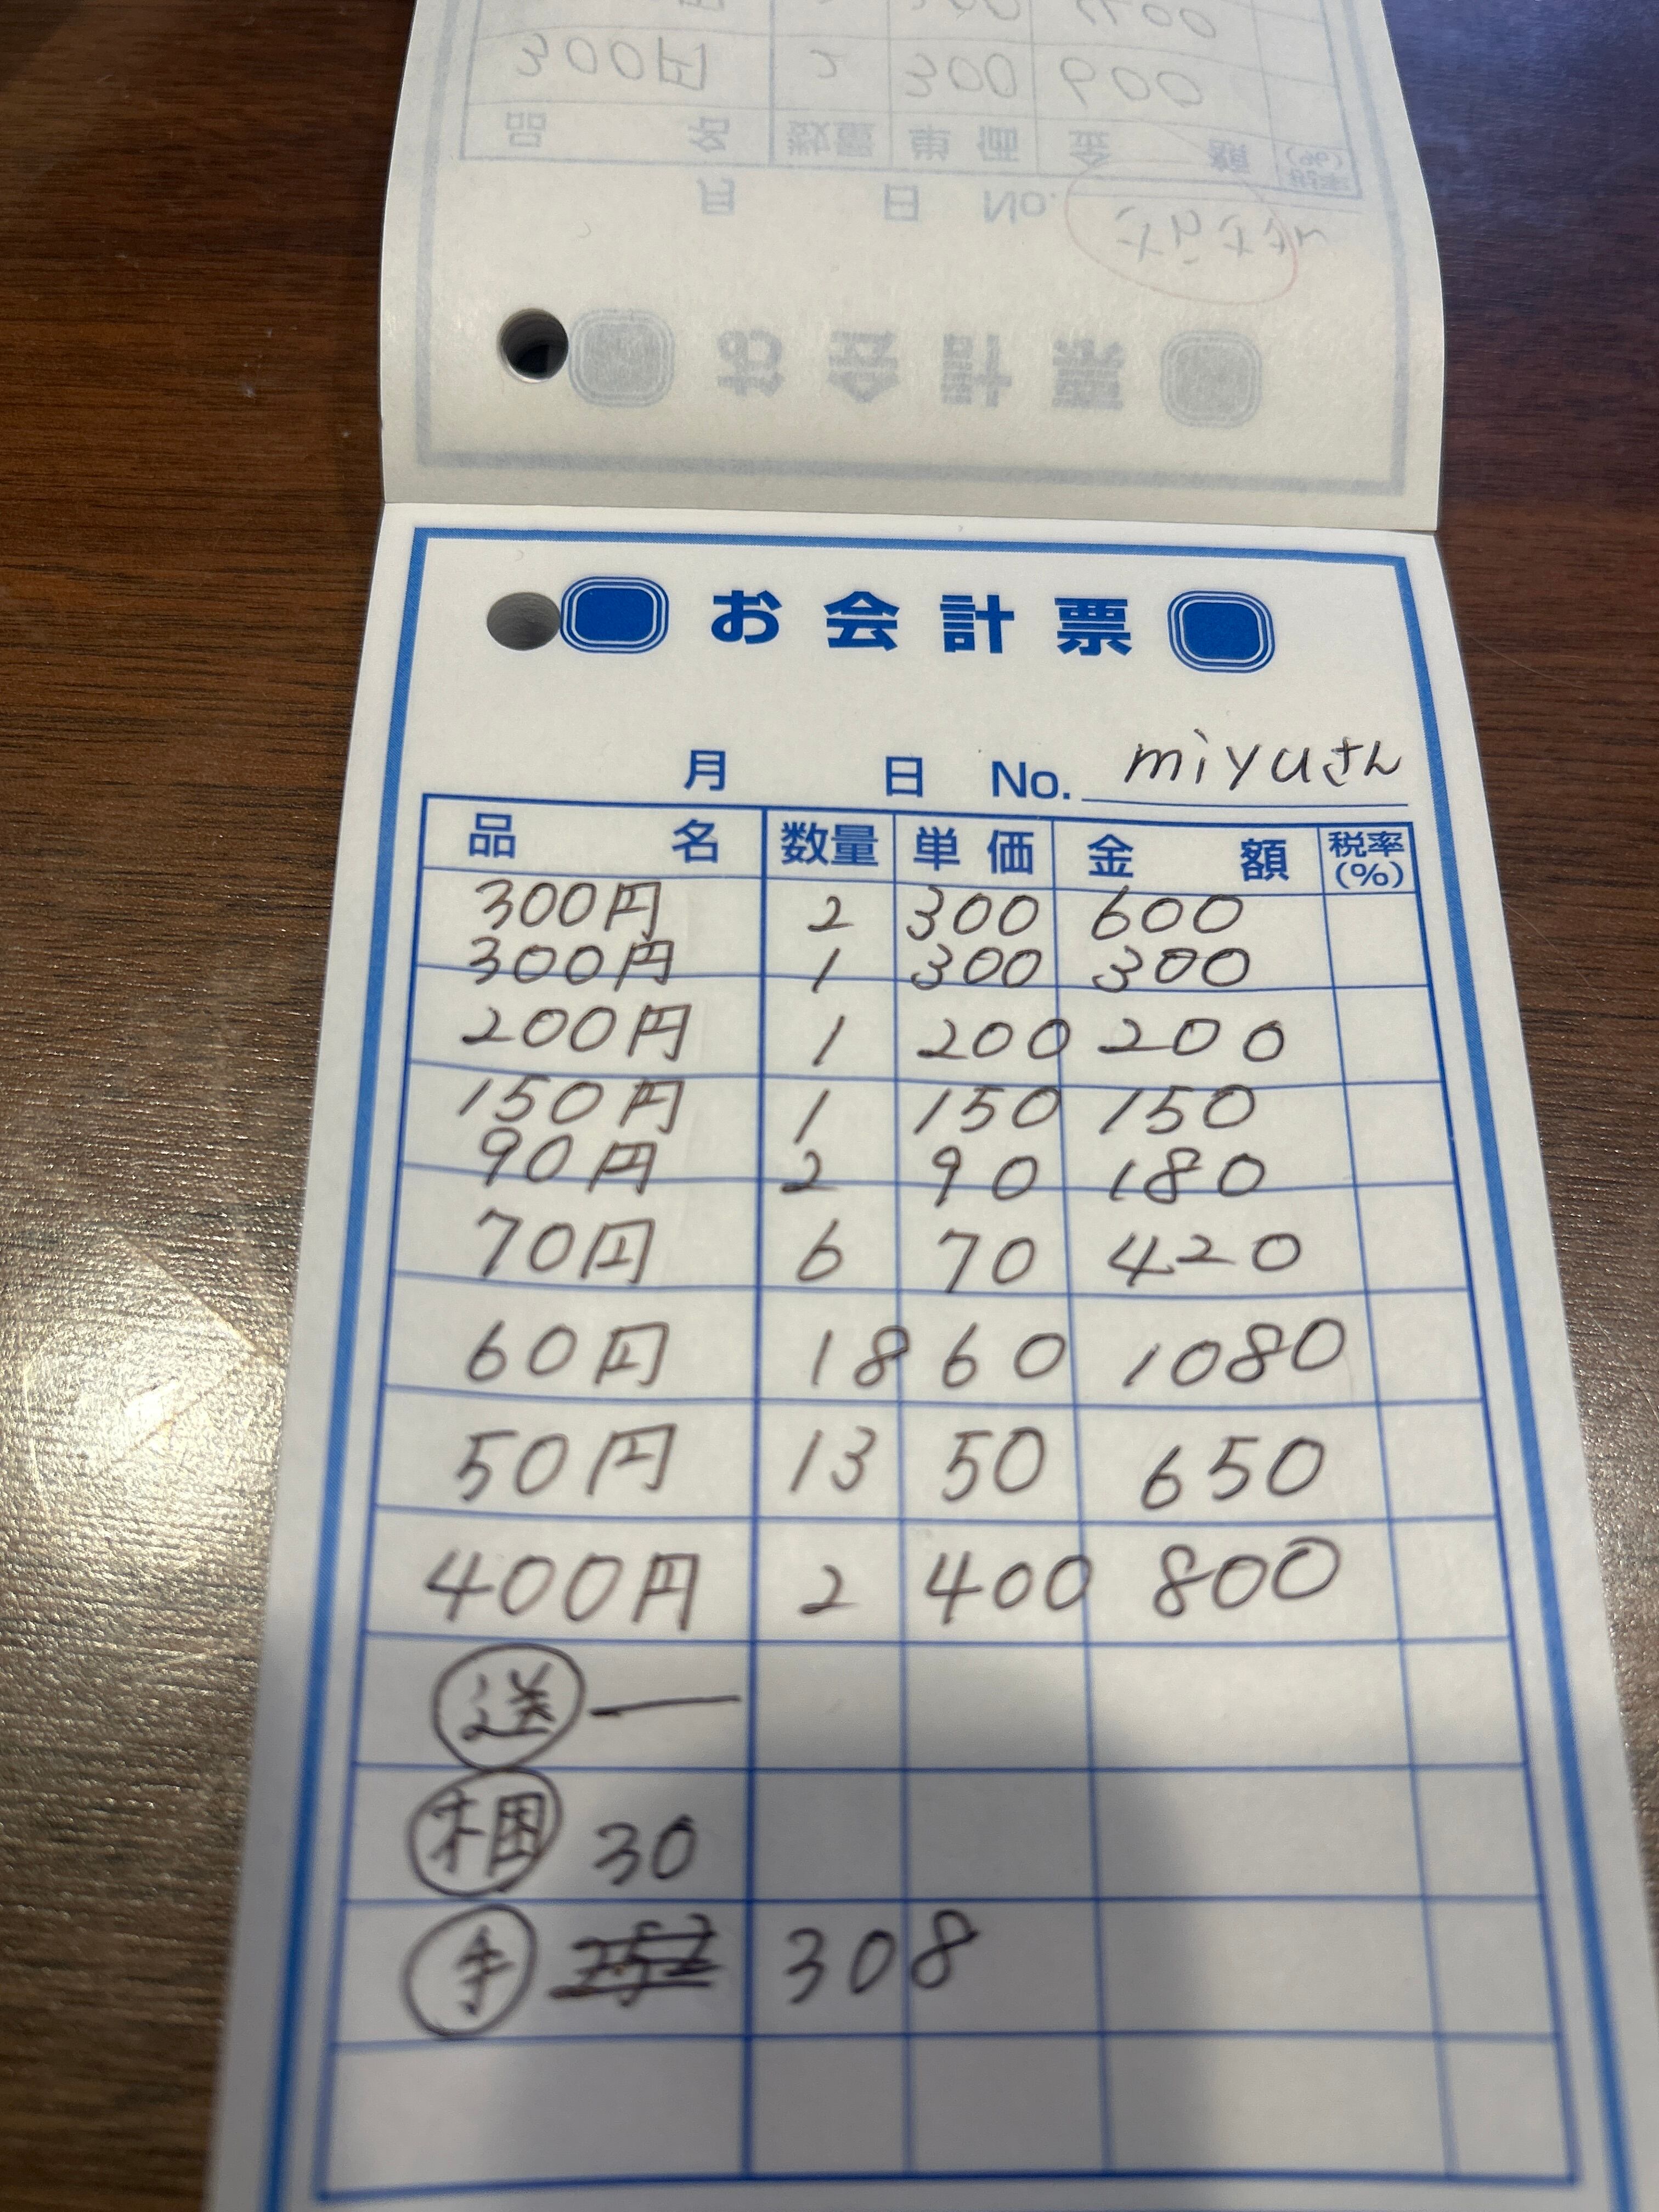 300円 2 300 600
品名 数量 単価 金額 税率(%)
月 日 No.
お会計票
お会計票
月 日 No. miyuさん
品名 数量 単価 金額 税率(%)
300円 2 300 600
300円 1 300 300
200円 1 200 200
150円 1 150 150
90円 2 90 180
70円 6 70 420
60円 18 60 1080
50円 13 50 650
400円 2 400 800
送 ー
梱 30
手 308